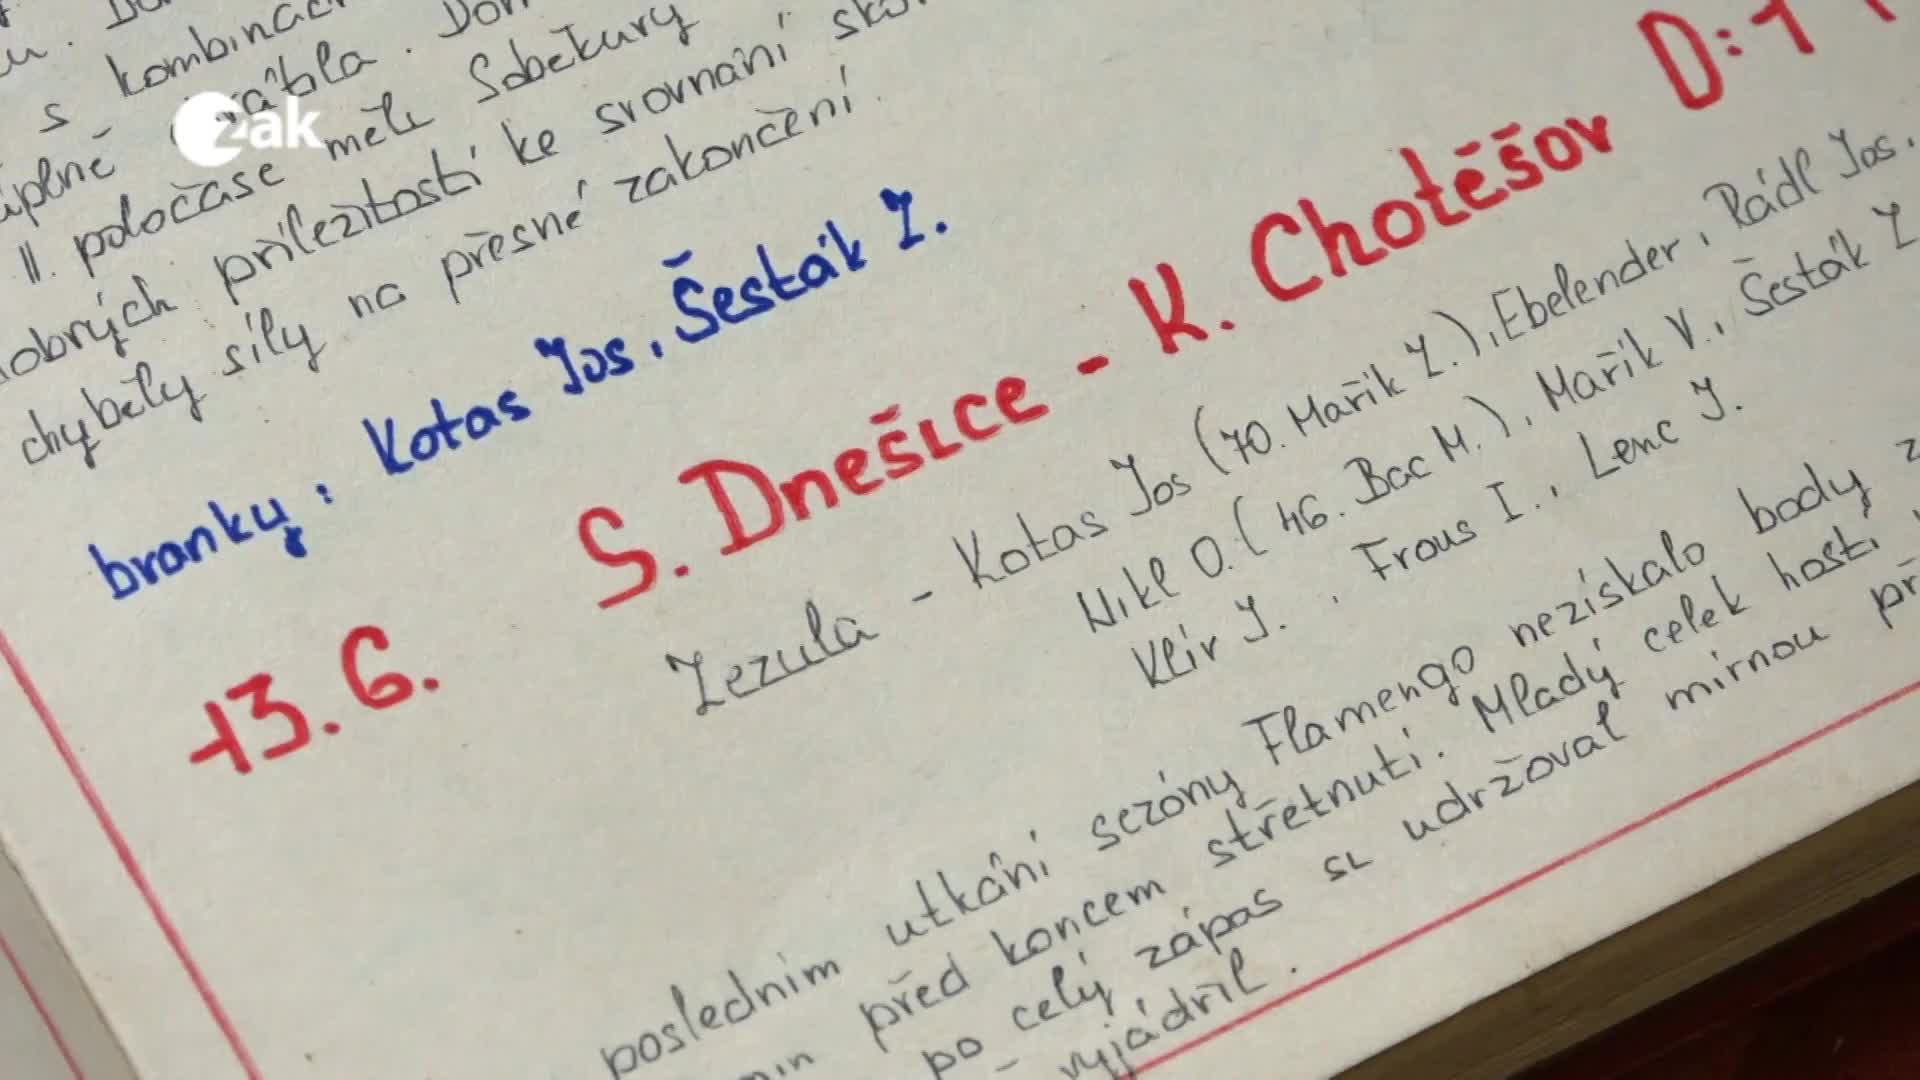 s kombinac
měli Soběkury
II. poločase
obrých příležitostí ke srovnání skó
chyběly síly na přesné zakončení.
branky: Kotas Jos, Šesták Z.
13.6. S. Dnešice - K. Chotěšov 0:1
Zezula - Kotas Jos (70. Mařík Z.), Ebelender, Rádl Jos.
Nikl O. (46. Bac M.), Mařík V., Šesták Z
Klír J., Frous I., Lenc J.
posledním utkání sezóny Flamengo nezískalo body z
min před koncem střetnutí. Mladý celek hostí
po celý zápas si udržoval mírnou př
vyjádřil.
zak